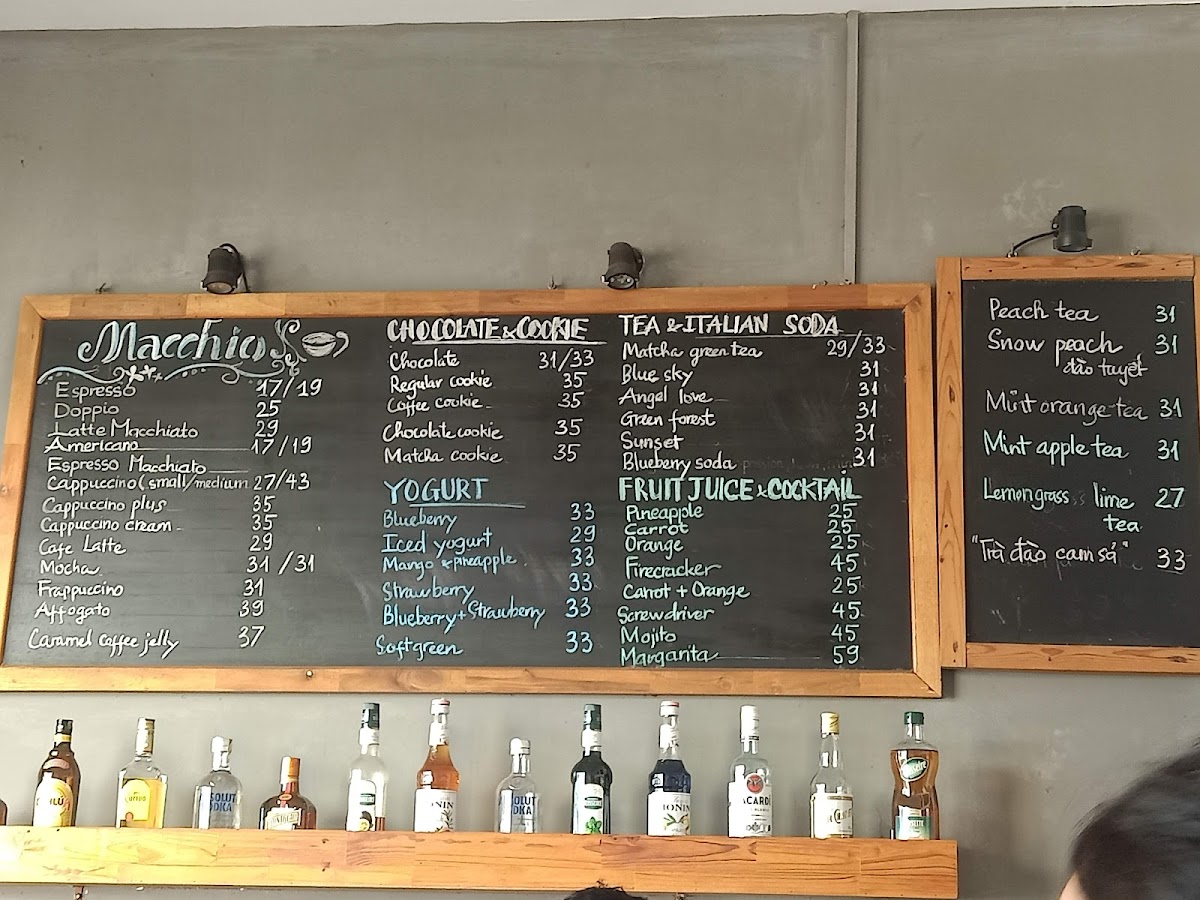 Macchiato
Espresso 17/19
Doppio 25
Latte Macchiato 29
Americano 17/19
Espresso Macchiato
Cappuccino (small/medium 27/43
Cappuccino plus 35
Cappuccino cream 35
Cafe Latte 29
Mocha 31/31
Frappuccino 31
Affogato 39
Caramel coffee jelly 37
CHOCOLATE & COOKIE
Chocolate 31/33
Regular cookie 35
Coffee cookie 35
Chocolate cookie 35
Matcha cookie 35
YOGURT
Blueberry 33
Iced yogurt 29
Mango & pineapple 33
Strawberry 33
Blueberry + Strawberry 33
Softgreen 33
TEA & ITALIAN SODA
Matcha green tea 29/33
Blue sky 31
Angel love 31
Green forest 31
Sunset 31
Blueberry soda 31
FRUIT JUICE & COCKTAIL
Pineapple 25
Carrot 25
Orange 25
Firecracker 45
Carrot + Orange 25
Screwdriver 45
Mojito 45
Margarita 59
Peach tea 31
Snow peach 31
đào tuyết
Mint orange tea 31
Mint apple tea 31
Lemongrass lime 27
tea
"Trà đào cam sả" 33